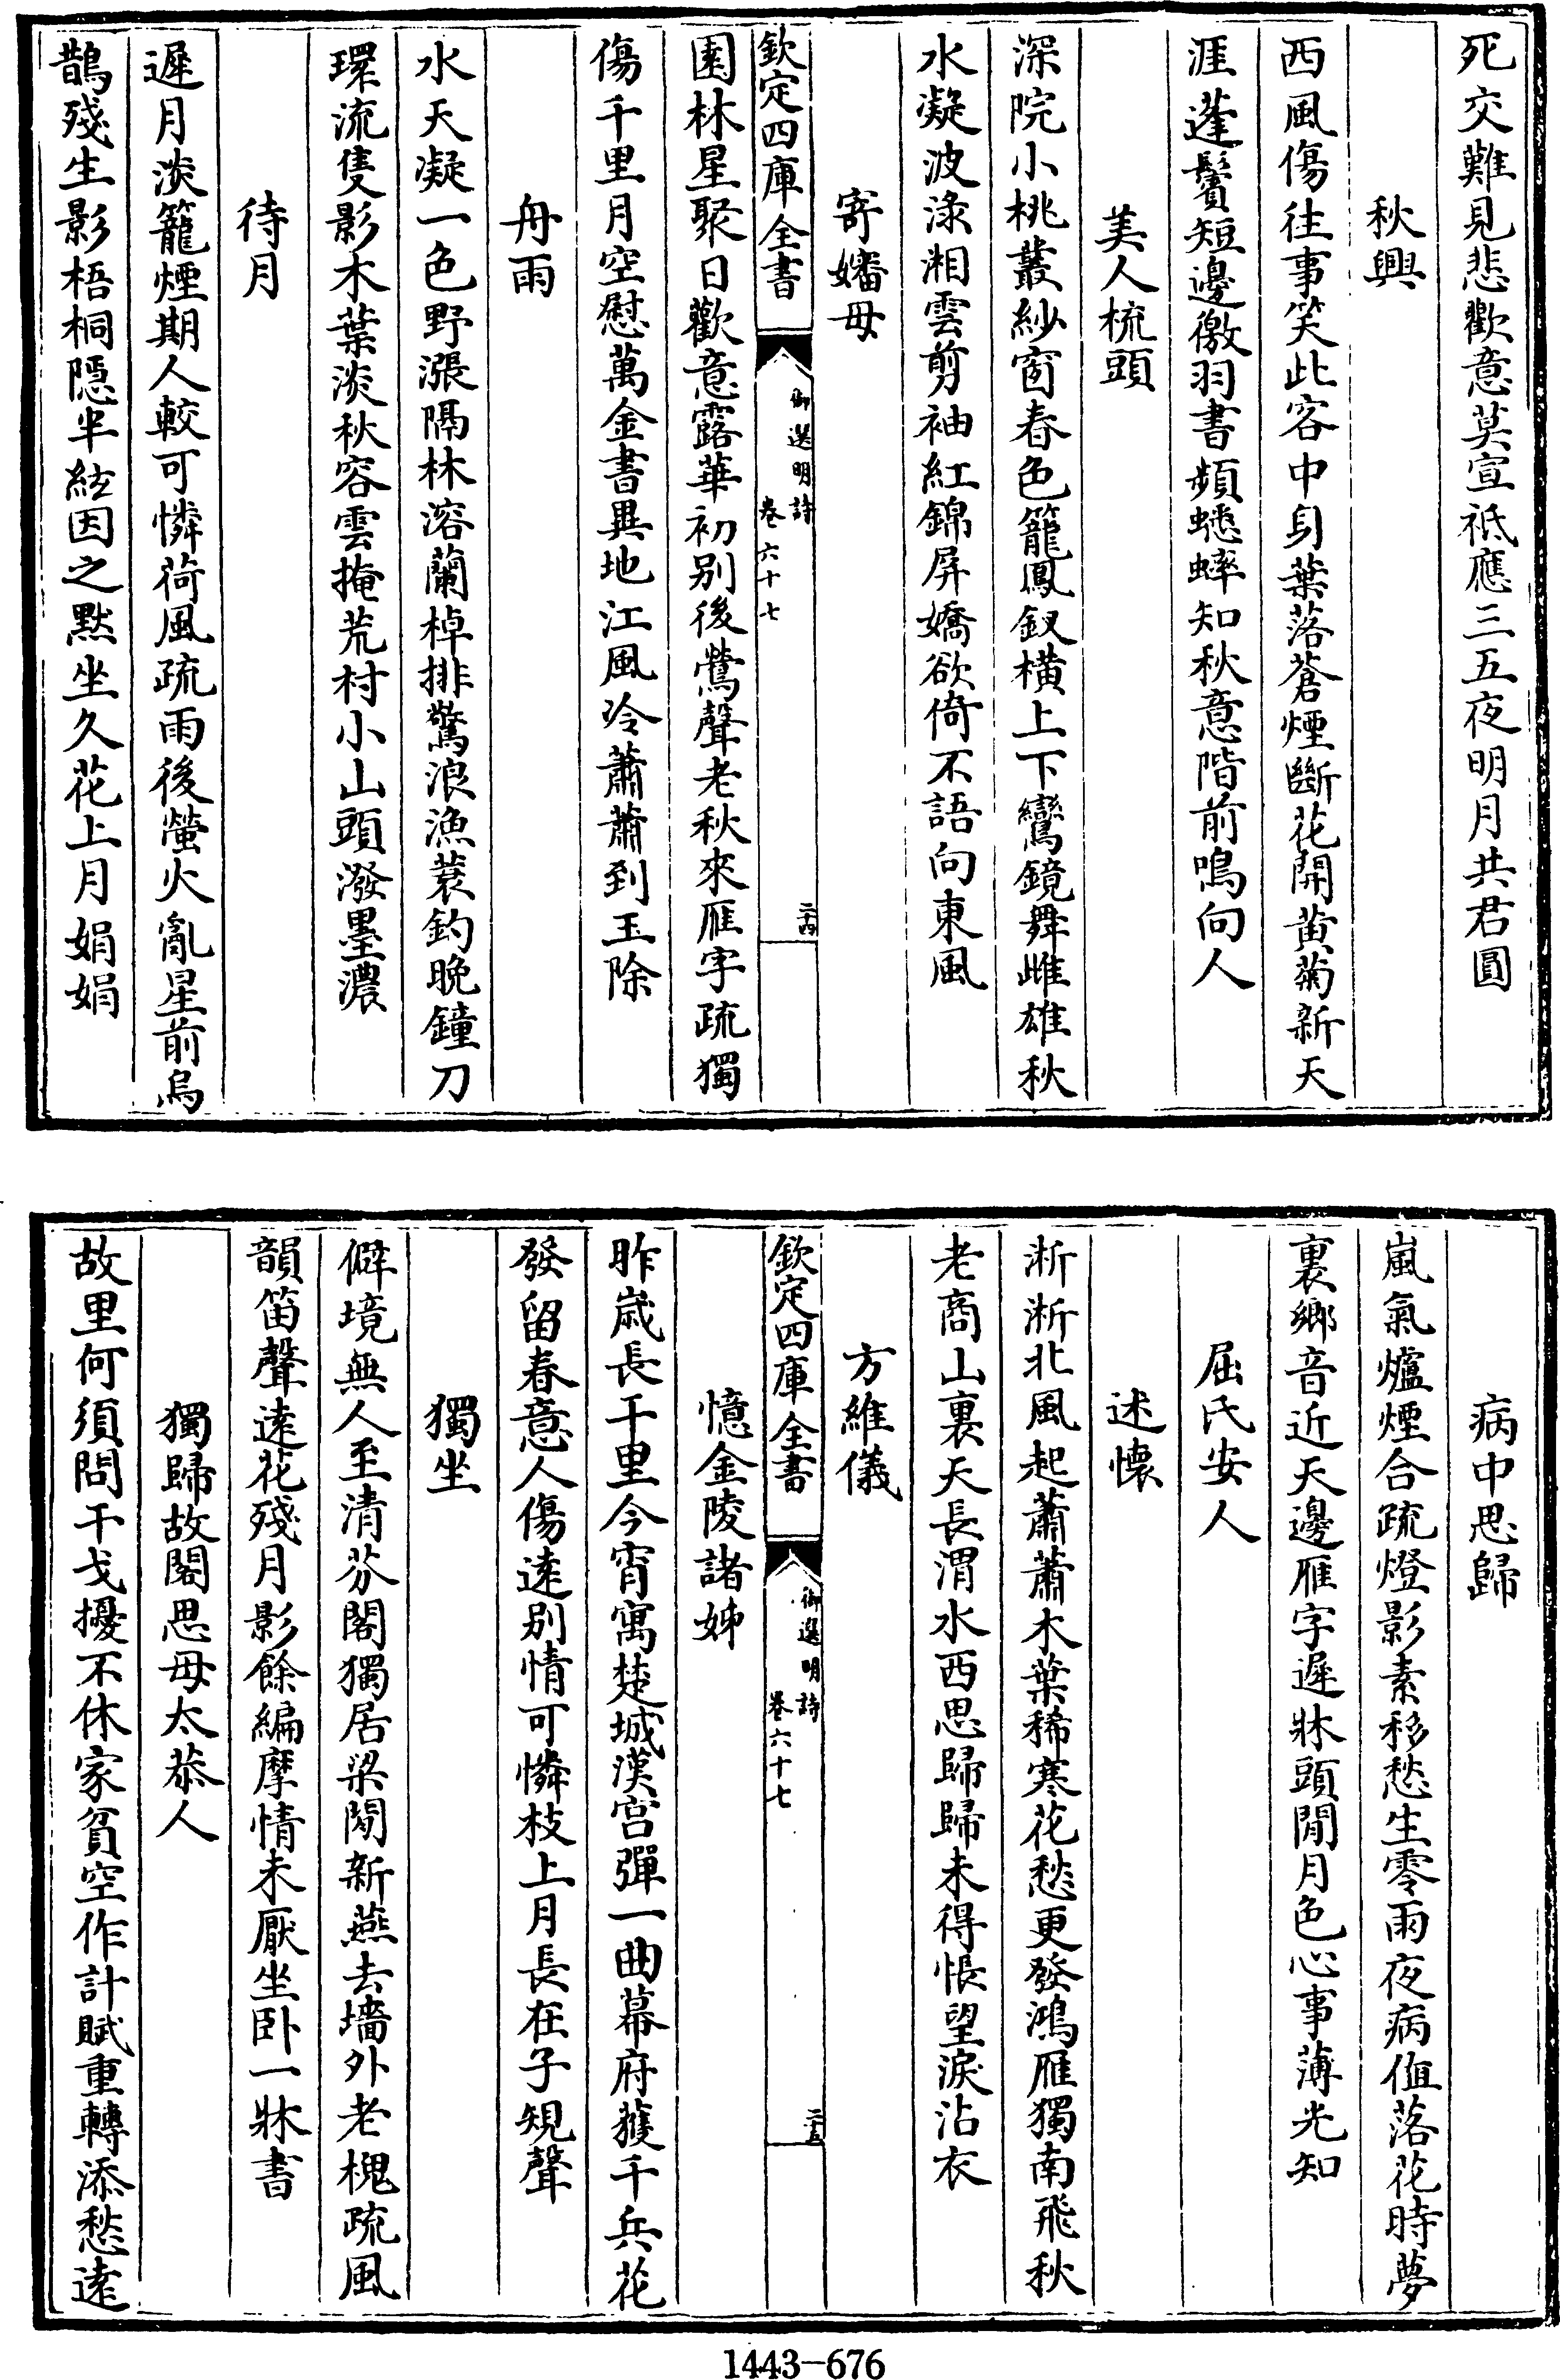 死交難見悲歡意莫宣祇應三五夜明月共君圓
秋興
西風傷往事笑此客中身葉落蒼煙斷花開黄菊新天
涯蓬鬢短邊徼羽書頻蟋蟀知秋意階前鳴向人
美人梳頭
深院小桃叢紗窗春色籠鳳釵横上下鸞鏡舞雌雄秋
水凝波渌湘雲剪袖紅錦屏嬌欲倚不語向東風
寄嬸母
欽定四庫全書
御選明詩
卷六十七
二十四
園林星聚日歡意露華初别後鶯聲老秋來雁字疏獨
傷千里月空慰萬金書異地江風冷蕭蕭到玉除
舟雨
水天凝一色野漲隔林溶蘭棹排驚浪漁蓑釣晚鐘刀
環流隻影木葉淡秋容雲掩荒村小山頭潑墨濃
待月
遲月淡籠煙期人較可憐荷風疏雨後螢火亂星前烏
鵲殘生影梧桐隱半絃因之黙坐久花上月娟娟
病中思歸
嵐氣爐煙合疏燈影素移愁生零雨夜病值落花時夢
裏鄉音近天邊雁字遲牀頭閒月色心事薄光知
屈氏安人
述懷
淅淅北風起蕭蕭木葉稀寒花愁更發鴻雁獨南飛秋
老商山裏天長渭水西思歸歸未得悵望淚沾衣
方維儀
欽定四庫全書
御選明詩
卷六十七
二十五
憶金陵諸姊
昨歲長干里今宵寓楚城漢宫彈一曲幕府獲千兵花
發留春意人傷逺别情可憐枝上月長在子規聲
獨坐
僻境無人至清芬閣獨居梁間新燕去墻外老槐疏風
韻笛聲逺花殘月影餘編摩情未厭坐卧一牀書
獨歸故閣思母太恭人
故里何須問干戈擾不休家貧空作計賦重轉添愁逺
1443-676